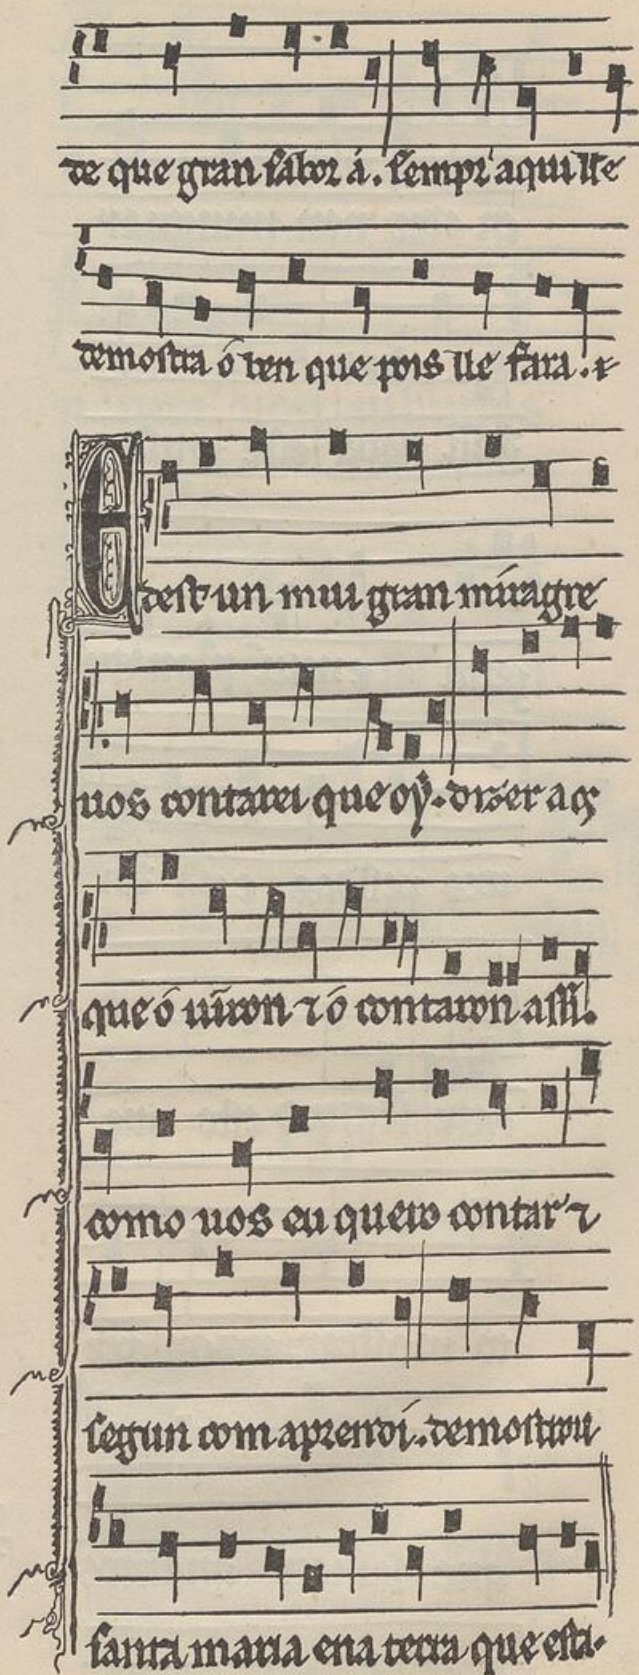 de que gran sabor á. sempr aqui lle
demostra ó ben que pois lle fara. ⁊
E dest un mui gran miragre
uos contarei que oý. dizer aos
que ó uiron ⁊ ó contaron assi.
como uos eu quero contar ⁊
segun com aprendi. demostrou
santa maria ena terra que esta